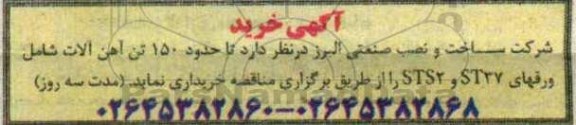 آگهی خرید
شرکت ساخت و نصب صنعتی البرز درنظر دارد تا حدود ۱۵۰ تن آهن آلات شامل
ورقهای ST۳۷ و STS۲ را از طریق برگزاری مناقصه خریداری نماید. (مدت سه روز)
۰۲۶۴۵۳۸۲۸۶۰-۰۲۶۴۵۳۸۲۸۶۸